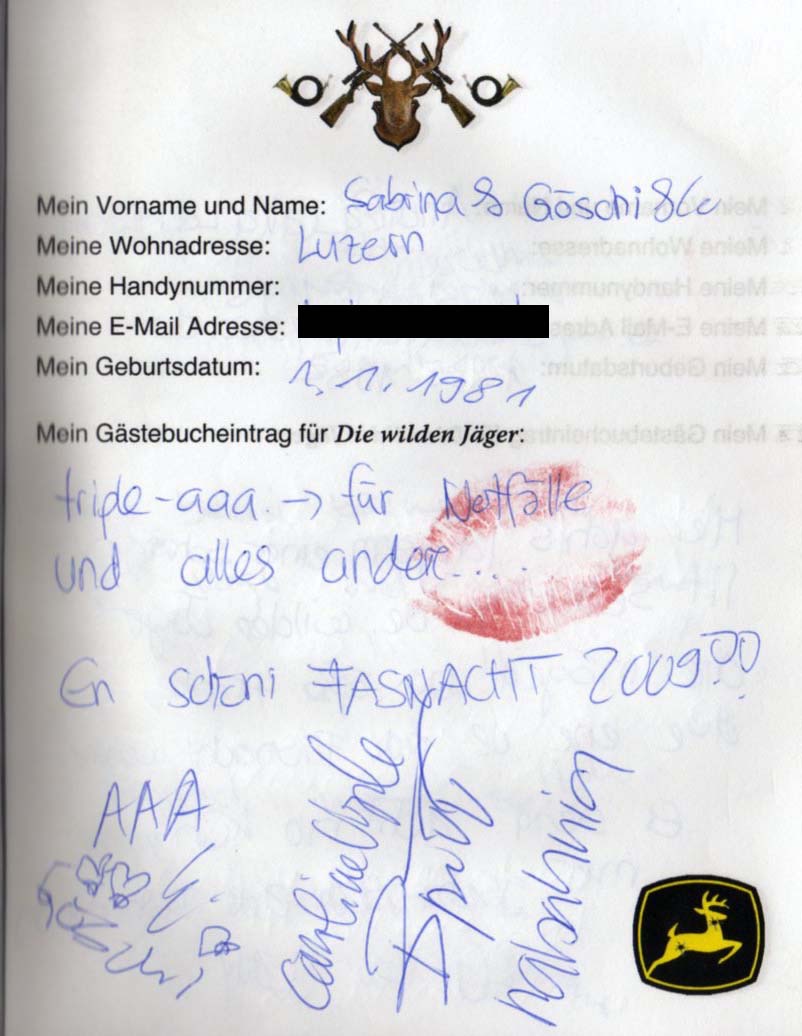 Mein Vorname und Name: Sabrina & Göschi &Co
Meine Wohnadresse: Luzern
Meine Handynummer:
Meine E-Mail Adresse:
Mein Geburtsdatum: 1.1.1981
Mein Gästebucheintrag für Die wilden Jäger:
triple-aaa. → für Notfälle
und alles andere....
En schöni FASNACHT 2009!!!
AAA
Göschi